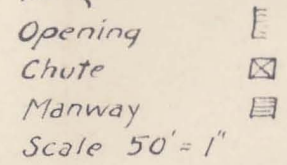 Opening
Chute
Manway
Scale 50' = 1"